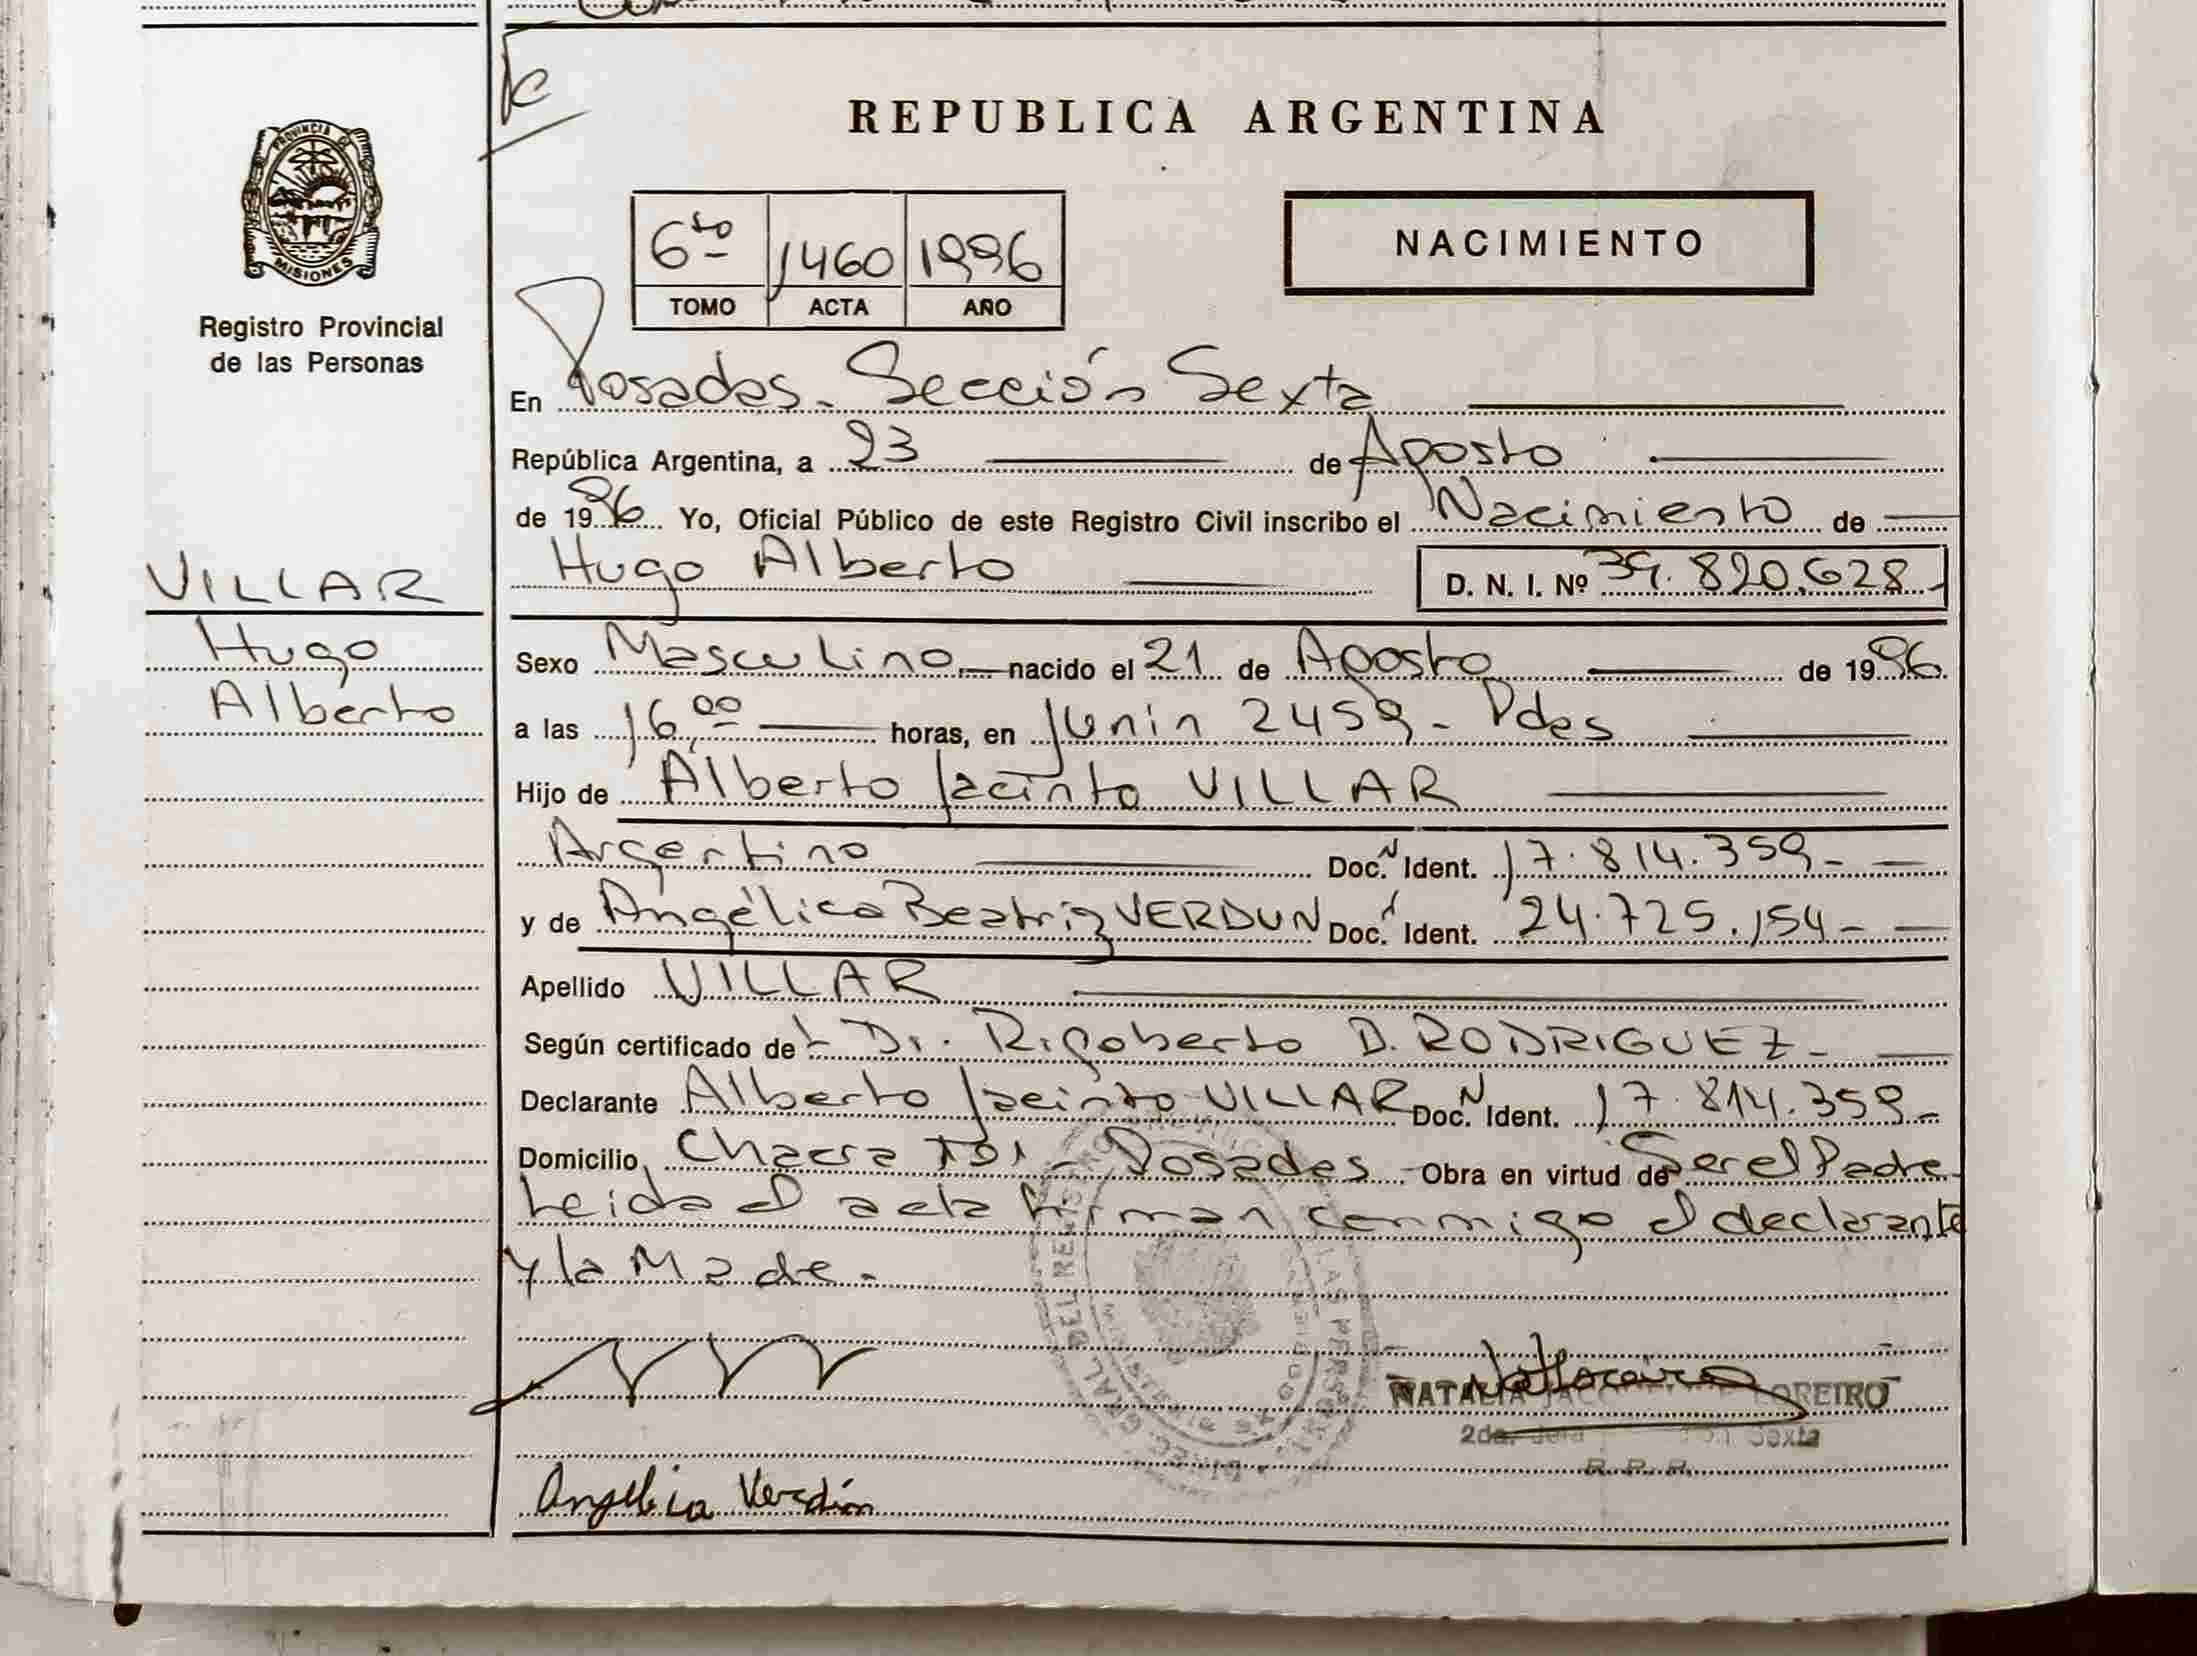 REPUBLICA ARGENTINA
PROVINCIA DE
MISIONES
Registro Provincial
de las Personas
6to 1460 1996
TOMO ACTA AÑO
NACIMIENTO
En Posadas - Sección Sexta
República Argentina, a 23 de Agosto
de 1996 Yo, Oficial Público de este Registro Civil inscribo el Nacimiento de
Hugo Alberto D. N. I. Nº 39.820.628-
VILLAR
Hugo
Alberto
Sexo Masculino nacido el 21 de Agosto de 1996
a las 16,00 horas, en Junín 2459 - Pdas
Hijo de Alberto Jacinto VILLAR
Argentino Doc. N Ident. 17.814.359-
y de Angélica Beatriz VERDUN Doc. Ident. 24.725.154-
Apellido VILLAR
Según certificado del Dr. Rigoberto D. RODRIGUEZ-
Declarante Alberto Jacinto VILLAR Doc. N Ident. 17.814.359-
Domicilio Chacra - Posadas Obra en virtud de Ser el Padre-
Leida el acta firman conmigo el declarante
y la Madre.
DIREC. GRAL. DEL REGISTRO LAS PERSONAS
NATALIA LOREIRO
2da. Jefa Sexta
R. P. P.
Angelica Verdún